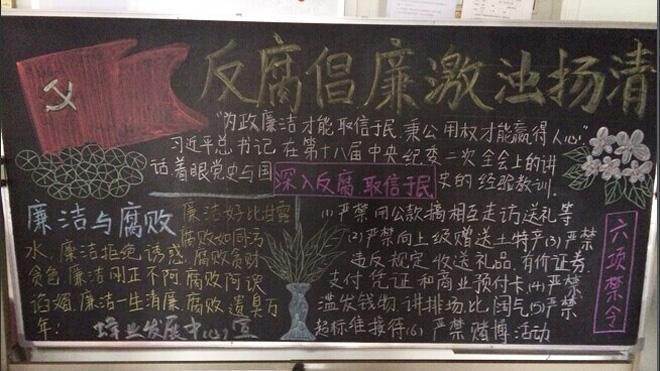 反腐倡廉激浊扬清
“为政廉洁才能取信于民,秉公用权才能赢得人心”
习近平总书记在第十八届中央纪委二次全会上的讲
话,着眼党史与国
深入反腐 取信于民
史的经验教训.
廉洁与腐败
廉洁好比甘露
水,
腐败如同污
廉洁拒绝诱惑,腐败贪财
贪色,廉洁刚正不阿,腐败阿谀
谄媚,廉洁一生清廉,腐败遗臭万
年!
业发展中心宣
(1)严禁用公款搞相互走访送礼等
(2)严禁向上级赠送土特产(3)严禁
违反规定收送礼品,有价证券.
支付凭证和商业预付卡(4)严禁
滥发钱物,讲排场.比阔气(5)严禁
超标准接待(6)严禁赌博活动
六项禁令